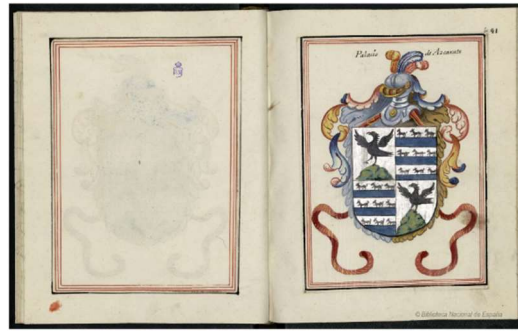 41
Palacio de Azcarate
© Biblioteca Nacional de España